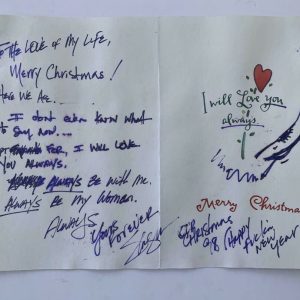 To THE LOVE of MY LIFE,
Merry Christmas!
HERE WE ARE...
I dont even know what
to say now...
FOR, I WILL LOVE
YOU ALWAYS.
ALWAYS BE WITH ME.
ALWAYS BE MY WOMAN.
ALWAYS
YOURS
FOREVER
I will Love you
always.
Merry Christmas
CHRISTMAS
98 HAPPY
NEW
YEAR